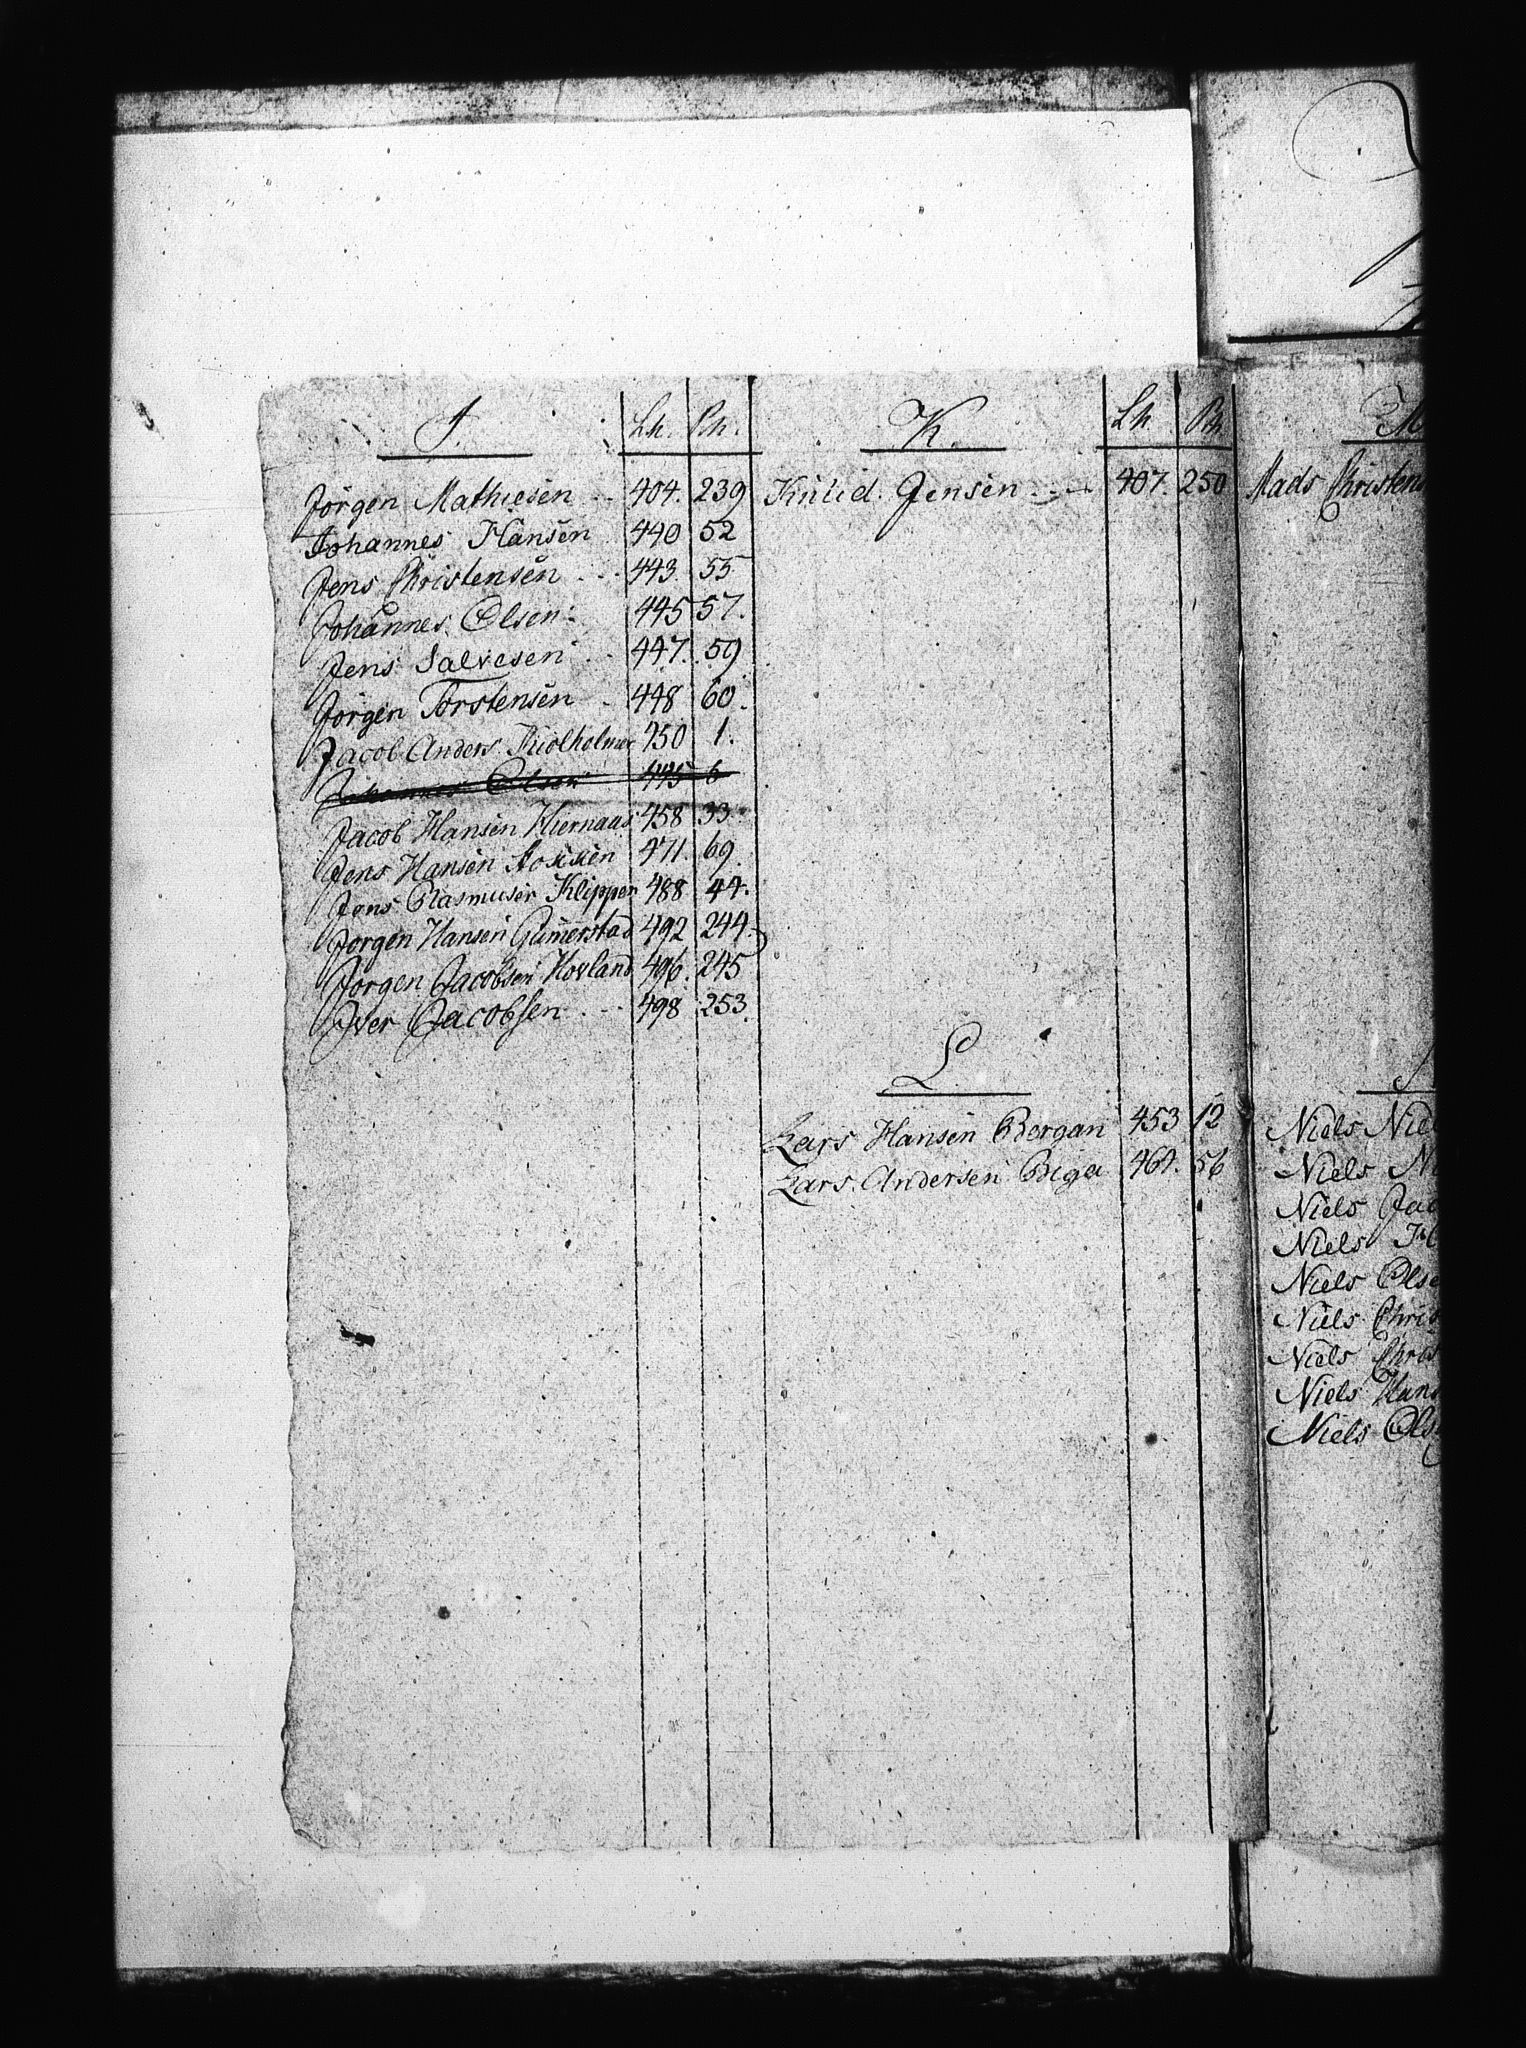 J. Lh. Ph.
Jörgen Mathiesen 404. 239
Johannes Hansen 440 52
Jens Christensen 443. 55
Johannes Olsen 445 57.
Jens Salvesen 447. 59
Jörgen Torstensen 448 60.
Jacob Anders. 450 1.
Johannes Olsen 445 6
Jacob Hansen 458 33
Jens Hansen 471. 69.
Jens Rasmuser Klipper 488 44.
Jörgen Hansen Gumerstad 492 244.
Jörgen Jacobsen Hovland 496. 245
Iver Jacobsen 498 253.
K. Lh. Ph
Knud Jensen 407. 250
L.
Lars Hansen Bergan 453 12
Lars Andersen Biga 464. 56
M
Mads Christens
Niels Niel
Niels
Niels Jac
Niels
Niels Olse
Niels Chris
Niels Chris
Niels Hans
Niels Ols